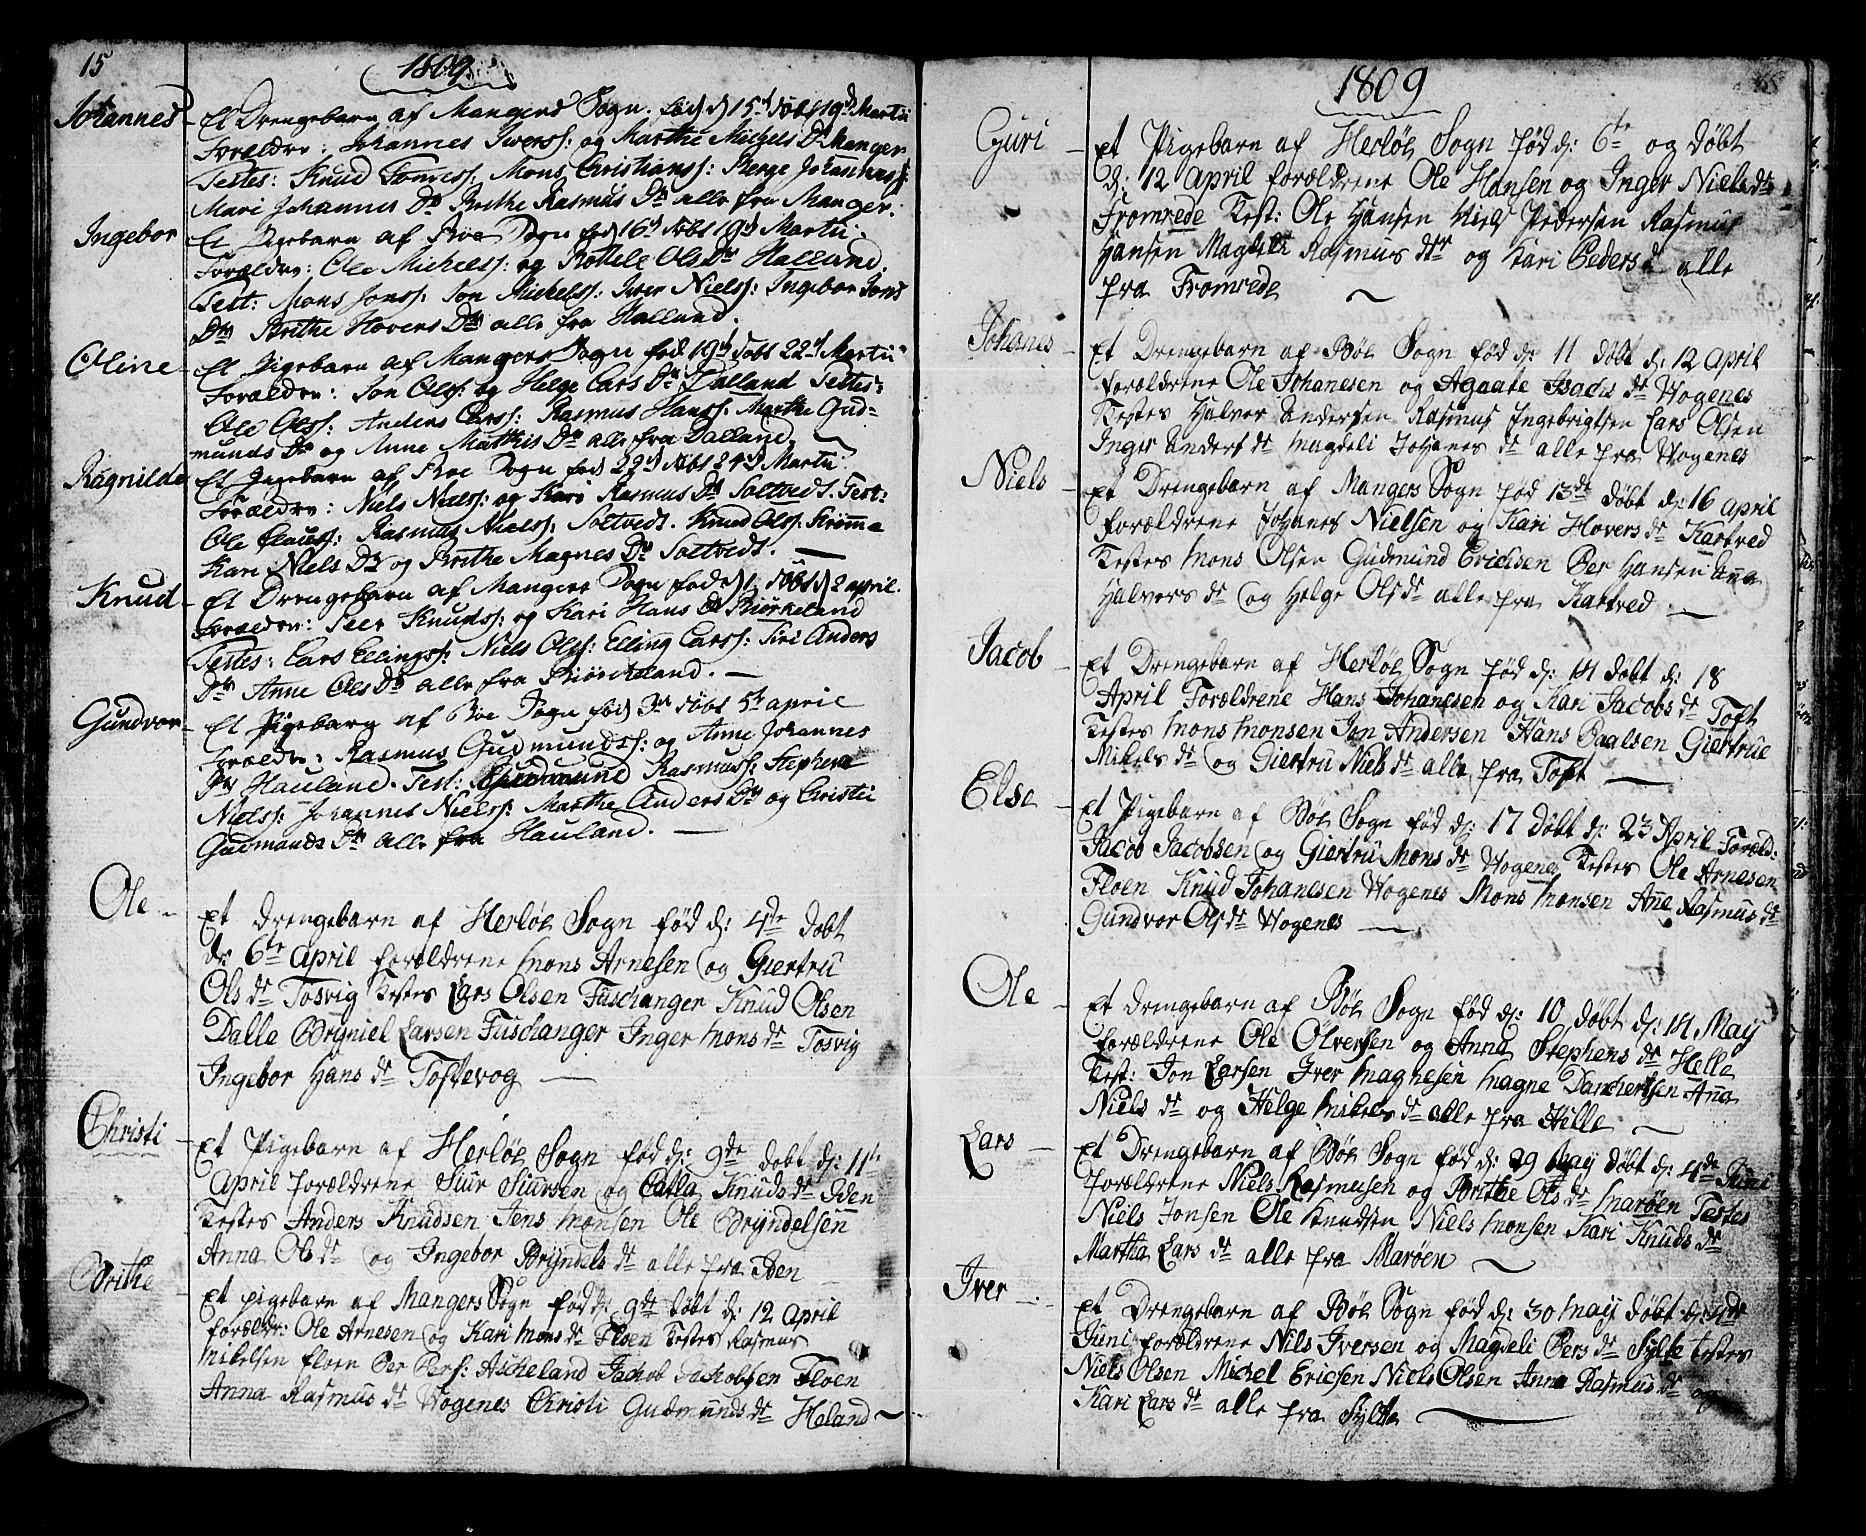 15
1809
Johannes
Et Drengebarn af Mangers Sogn. fød d 15d døbt 19d Martii
Forældre: Johannes Iverss: og Marthe Michels Dr Manger
Testes: Knud Mons Christianss: Johanness:
Mari Johannes Dr Brithe Rasmus Dr alle fra Manger.
Ingebor
Et Pigebarn af Boe Sogn fød 16d døbt 19d Martii.
Forældre: Ole Michelss: og Ols Dr Halland.
Test: Mons Jonss: Jon Michelss: Iver Nielss: Ingebor Jons
Dr Brithe Hovers Dr alle fra Halland.
Oline
Et Pigebarn af Mangers Sogn fød 19d døbt 22d Martii
Forældre: Jon Olss: og Helge Lars Dr Dalland Testes:
Ole Olss: Anders Larss: Rasmus Hanss: Marthe Gud-
munds Dr og Anne Matthis Dr alle fra Dalland.
Ragnilde
Et Pigebarn af Boe Sogn fød 22d døbt 24d Martii
Forældre: Niels Nielss: og Kari Rasmus Dr Soltvedt. Test:
Ole Rasmus Nielss: Soltvedt. Knud Olss:
Kari Niels Dr og Brithe Magnes Dr Soltvedt.
Knud
Et Drengebarn af Mangers Sogn født d 1 døbt d 2 april.
Forældre: Peer Knudss: og Kari Hans Dr Biörkeland
Testes: Lars Ellingss: Niels Olss: Elling Larss: Siri Anders
Dr Anne Ols Dr alle fra Biörkeland.
Gundvor
Et Pigebarn af Böe Sogn fød 3n døbt 5te april
Forældre: Rasmus Gudmundss: og Anne Johannes
Dr Hauland. Test: Gudmund Rasmuss: Stephen
Nielss: Johannes Nielss: Marthe Anders Dr og Christii
Gudmunds Dr alle fra Hauland.
Ole
Et Drengebarn af Herlöe Sogn fød d: 4de döbt
d: 6te April forældrene Mons Arnesen og Giertru
Ols dr Tosvig Testes Lars Olsen Fuschanger Knud Olsen
Dalle Bryniel Larsen Fuschanger Inger Mons dr Tosvig
Ingebor Hans dr Toftevog
Christi
Et Pigebarn af Herlöe Sogn fød d: 9de døbt d: 11te
April forældrene Siur Siursen og Calla Knuds dr Iden
Testes Anders Knudsen Jens Monsen Ole Bryndelsen
Anna Ols dr og Ingebor Bryndels dr alle fra Iden
Brithe
Et pigebarn af Mangers Sogn fød d: 9de døbt d: 12 April
forældr: Ole Arnesen og Kari Mons dr Floen Testes Rasmus
Mikelsen Floen Per Pers: Ascheland Jachob Jachobsen Floen
Anna Rasmus dr Wogenes Christi Gudmunds dr Holand
1809
Guri
Et Pigebarn af Herlöe Sogn fød d: 6te og døbt
d: 12 April forældrene Ole Hansen og Inger Niels dr
Fromrede Test: Ole Hansen Niels Pedersen Rasmus
Hansen Magdeli Rasmus dtr og Kari Peders d alle
fra Fromrede
Johanes
Et Drengebarn af Böe Sogn fød d: 11 døbt d: 12 April
forældrene Ole Johanesen og Agaate Isachs dr Wogenes
Testes Halver Andersen Rasmus Ingebrigtsen Lars Olsen
Inger Anders dr Magdeli Johanes dr alle fra Wogenes
Niels
Et Drengebarn af Mangers Sogn fød 13de døbt d: 16 April
forældrene Johanes Nielsen og Kari Hovers dr Kartved
Testes Mons Olsen Gudmund Ericksen Per Hansen Ana
Halvers dr og Helge Ols dr alle fra Kartved
Jacob
Et Drengebarn af Herlöe Sogn fød d: 14 døbt d: 18
April Forældrene Hans Johanesen og Kari Jacobs dr Toft
Testes Mons Monsen Jon Andersen Hans Paalsen Giertrue
Mikels dr og Giertru Niels dr alle fra Toft
Else
Et Pigebarn af Böe Sogn fød d: 17 døbt d: 23 April Foræld:
Jacob Jacobsen og Giertru Mons dr Wogene Testes Ole Arnesen
Floen Knud Johanesen Wogenes Mons Monsen Ane Rasmus dr
Gundvor Ols dr Wogenes
Ole
Et Drengebarn af Böe Sogn fød d: 10 døbt d: 14 May
forældrene Ole Olversen og Anna Stephens dr Helle
Test: Jon Larsen Iver Magnesen Magne Danchertsen Ana
Niels dr og Helge Mikels dr alle fra Hille
Lars
Et Drengebarn af Böe Sogn fød d: 29 May døbt d: 4de Juni
forældrene Niels Rasmusen og Brithe Ols dr Maröen Testes
Niels Jonsen Ole Knudsen Niels Monsen Kari Knuds dr
Martha Lars dr alle fra Maröen
Iver
Et Drengebarn af Böe Sogn fød d: 30 May døbt d: 4de
Juni forældrene Nils Iversen og Magdeli Pers dr Sylte testes
Niels Olsen Michel Ericsen Niels Olsen Anna Rasmus dr og
Kari Lars dr alle fra Sylte